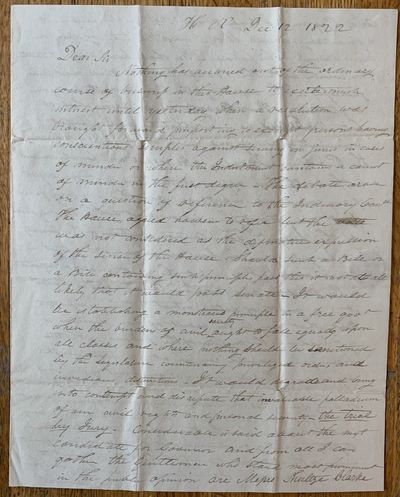 H R Dec 12 1822
Dear Sir
Nothing has occurred out of the ordinary
course of business in the House to excite much
interest until yesterday when a resolution was
brought forward purporting to persons having
conscientious scruples against serving on juries in cases
of murder or where the Indictment contains a count
of murder in the first degree - The debate arose
on a question of reference to the Judiciary Comtt
The House agreed to but the
was not considered as the expression
of the sense of the House. Should such a Bill or
a Bill containing such principle pass this it is not at all
likely that it would pass Senate - It would
be establishing a monstrous principle in a free govt
when the burden of civil ought to fall equally upon
all classes and where nothing should be sanctioned
by the legislature countenancing privileged orders and
invidious distinctions - It would degrade and bring
into contempt and disrepute that invaluable palladium
of our civil rights and personal security the trial
by Jury - Considerable is said about the next
candidate for Governor and from all I can
gather the Gentlemen who stand most prominent
in the public opinion are Messrs Shultze